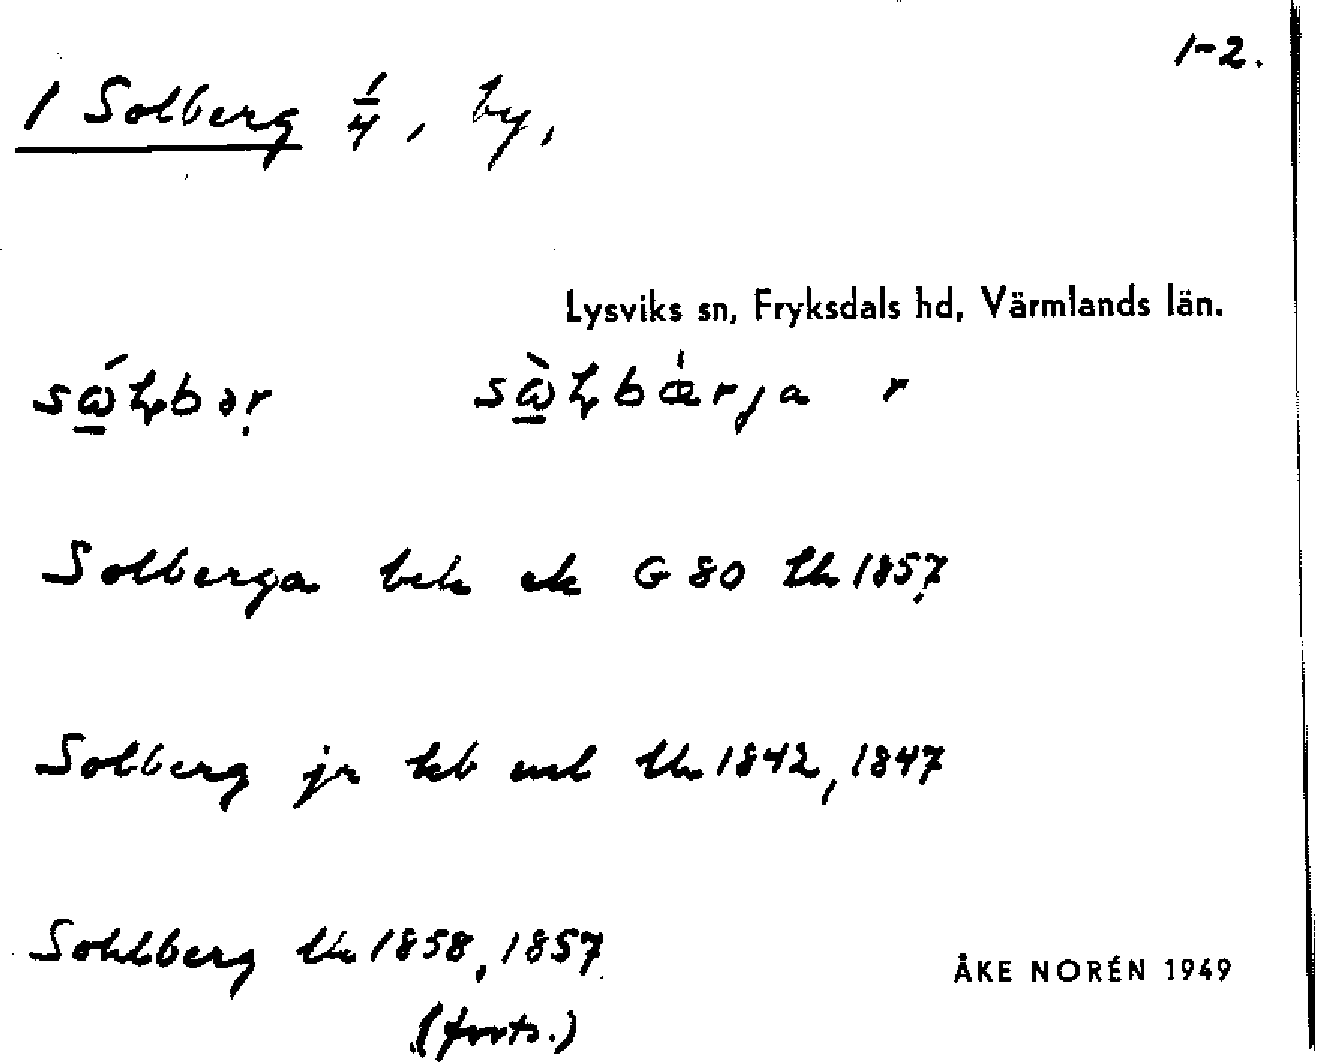 1-2.
1 Solberg 1/4, by,
Lysviks sn, Fryksdals hd, Värmlands län.
Solberga bek ek G 80 lk 1857
Solberg jr hb lk 1842, 1847
Sohlberg lk 1858, 1857
ÅKE NORÉN 1949
(forts.)